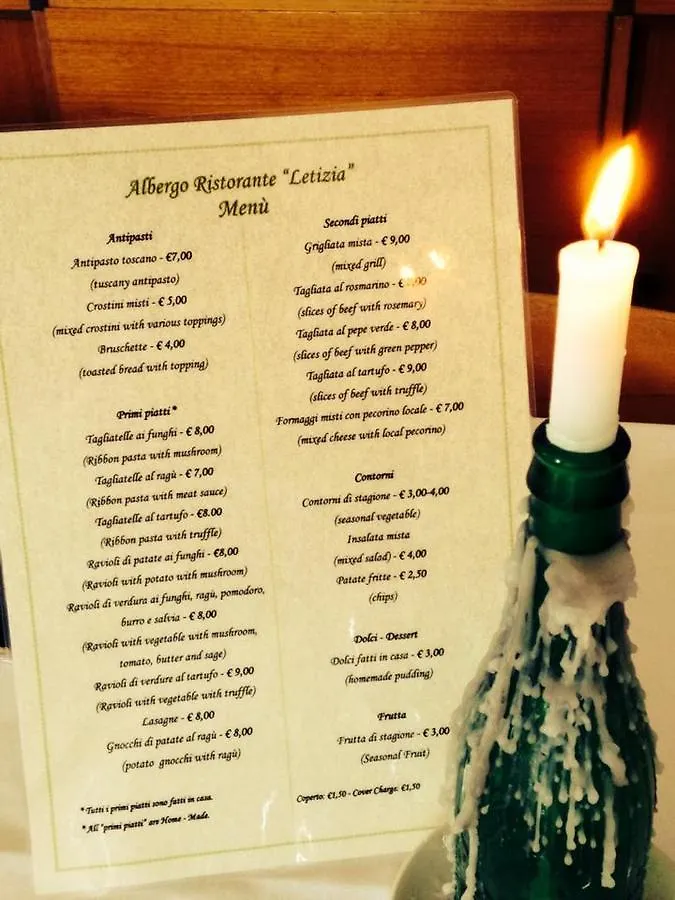 Albergo Ristorante "Letizia"
Menù
Antipasti
Antipasto toscano - €7,00
(tuscany antipasto)
Crostini misti - € 5,00
(mixed crostini with various toppings)
Bruschette - € 4,00
(toasted bread with topping)
Primi piatti*
Tagliatelle ai funghi - € 8,00
(Ribbon pasta with mushroom)
Tagliatelle al ragù - € 7,00
(Ribbon pasta with meat sauce)
Tagliatelle al tartufo - €8.00
(Ribbon pasta with truffle)
Ravioli di patate ai funghi - €8,00
(Ravioli with potato with mushroom)
Ravioli di verdura ai funghi, ragù, pomodoro,
burro e salvia - € 8,00
(Ravioli with vegetable with mushroom,
tomato, butter and sage)
Ravioli di verdure al tartufo - € 9,00
(Ravioli with vegetable with truffle)
Lasagne - € 8,00
Gnocchi di patate al ragù - € 8,00
(potato gnocchi with ragù)
* Tutti i primi piatti sono fatti in casa.
* All "primi piatti" are Home - Made.
Secondi piatti
Grigliata mista - € 9,00
(mixed grill)
Tagliata al rosmarino - €
(slices of beef with rosemary)
Tagliata al pepe verde - € 8,00
(slices of beef with green pepper)
Tagliata al tartufo - € 9,00
(slices of beef with truffle)
Formaggi misti con pecorino locale - € 7,00
(mixed cheese with local pecorino)
Contorni
Contorni di stagione - € 3,00-4,00
(seasonal vegetable)
Insalata mista
(mixed salad) - € 4,00
Patate fritte - € 2,50
(chips)
Dolci - Dessert
Dolci fatti in casa - € 3,00
(homemade pudding)
Frutta
Frutta di stagione - € 3,00
(Seasonal Fruit)
Coperto: €1,50 - Cover Charge: €1,50